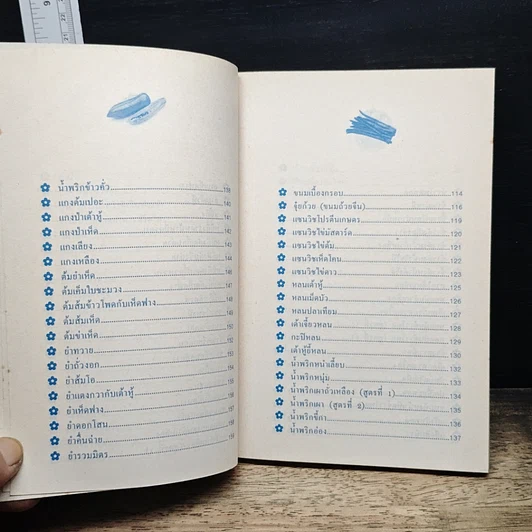 น้ำพริกข้าวคั่ว 138
แกงต้มเปอะ 140
แกงป่าเต้าหู้ 141
แกงป่าเห็ด
แกงเลียง
แกงเหลือง
ต้มยำเห็ด
ต้มเค็มใบชะมวง
ต้มส้มข้าวโพดกับเห็ดฟาง 148
ต้มส้มเห็ด
ต้มข่าเห็ด 150
ยำทวาย 152
ยำถั่วงอก
ยำส้มโอ
ยำแตงกวากับเต้าหู้
ยำเห็ดฟาง
ยำดอกโสน
ยำคื่นฉ่าย
ยำรวมมิตร
ขนมเบื้องกรอบ 114
จุ๋ยก้วย (ขนมถ้วยจีน) 116
แซนวิชโปรตีนเกษตร 119
แซนวิชไข่มัสตาร์ด 120
แซนวิชไข่ต้ม 121
แซนวิชเห็ดโคน 122
แซนวิชไข่ดาว 123
หลนเต้าหู้ 125
หลนเม็ดบัว 126
หลนปลาเทียม 127
เต้าเจี้ยวหลน 128
กะปิหลน 129
เต้าหู้ยี้หลน 130
น้ำพริกหน้าเลียบ 132
น้ำพริกหนุ่ม 133
น้ำพริกเผาถั่วเหลือง (สูตรที่ 1) 134
น้ำพริกเผา (สูตรที่ 2) 135
น้ำพริกขี้กา 136
น้ำพริกอ่อง 137